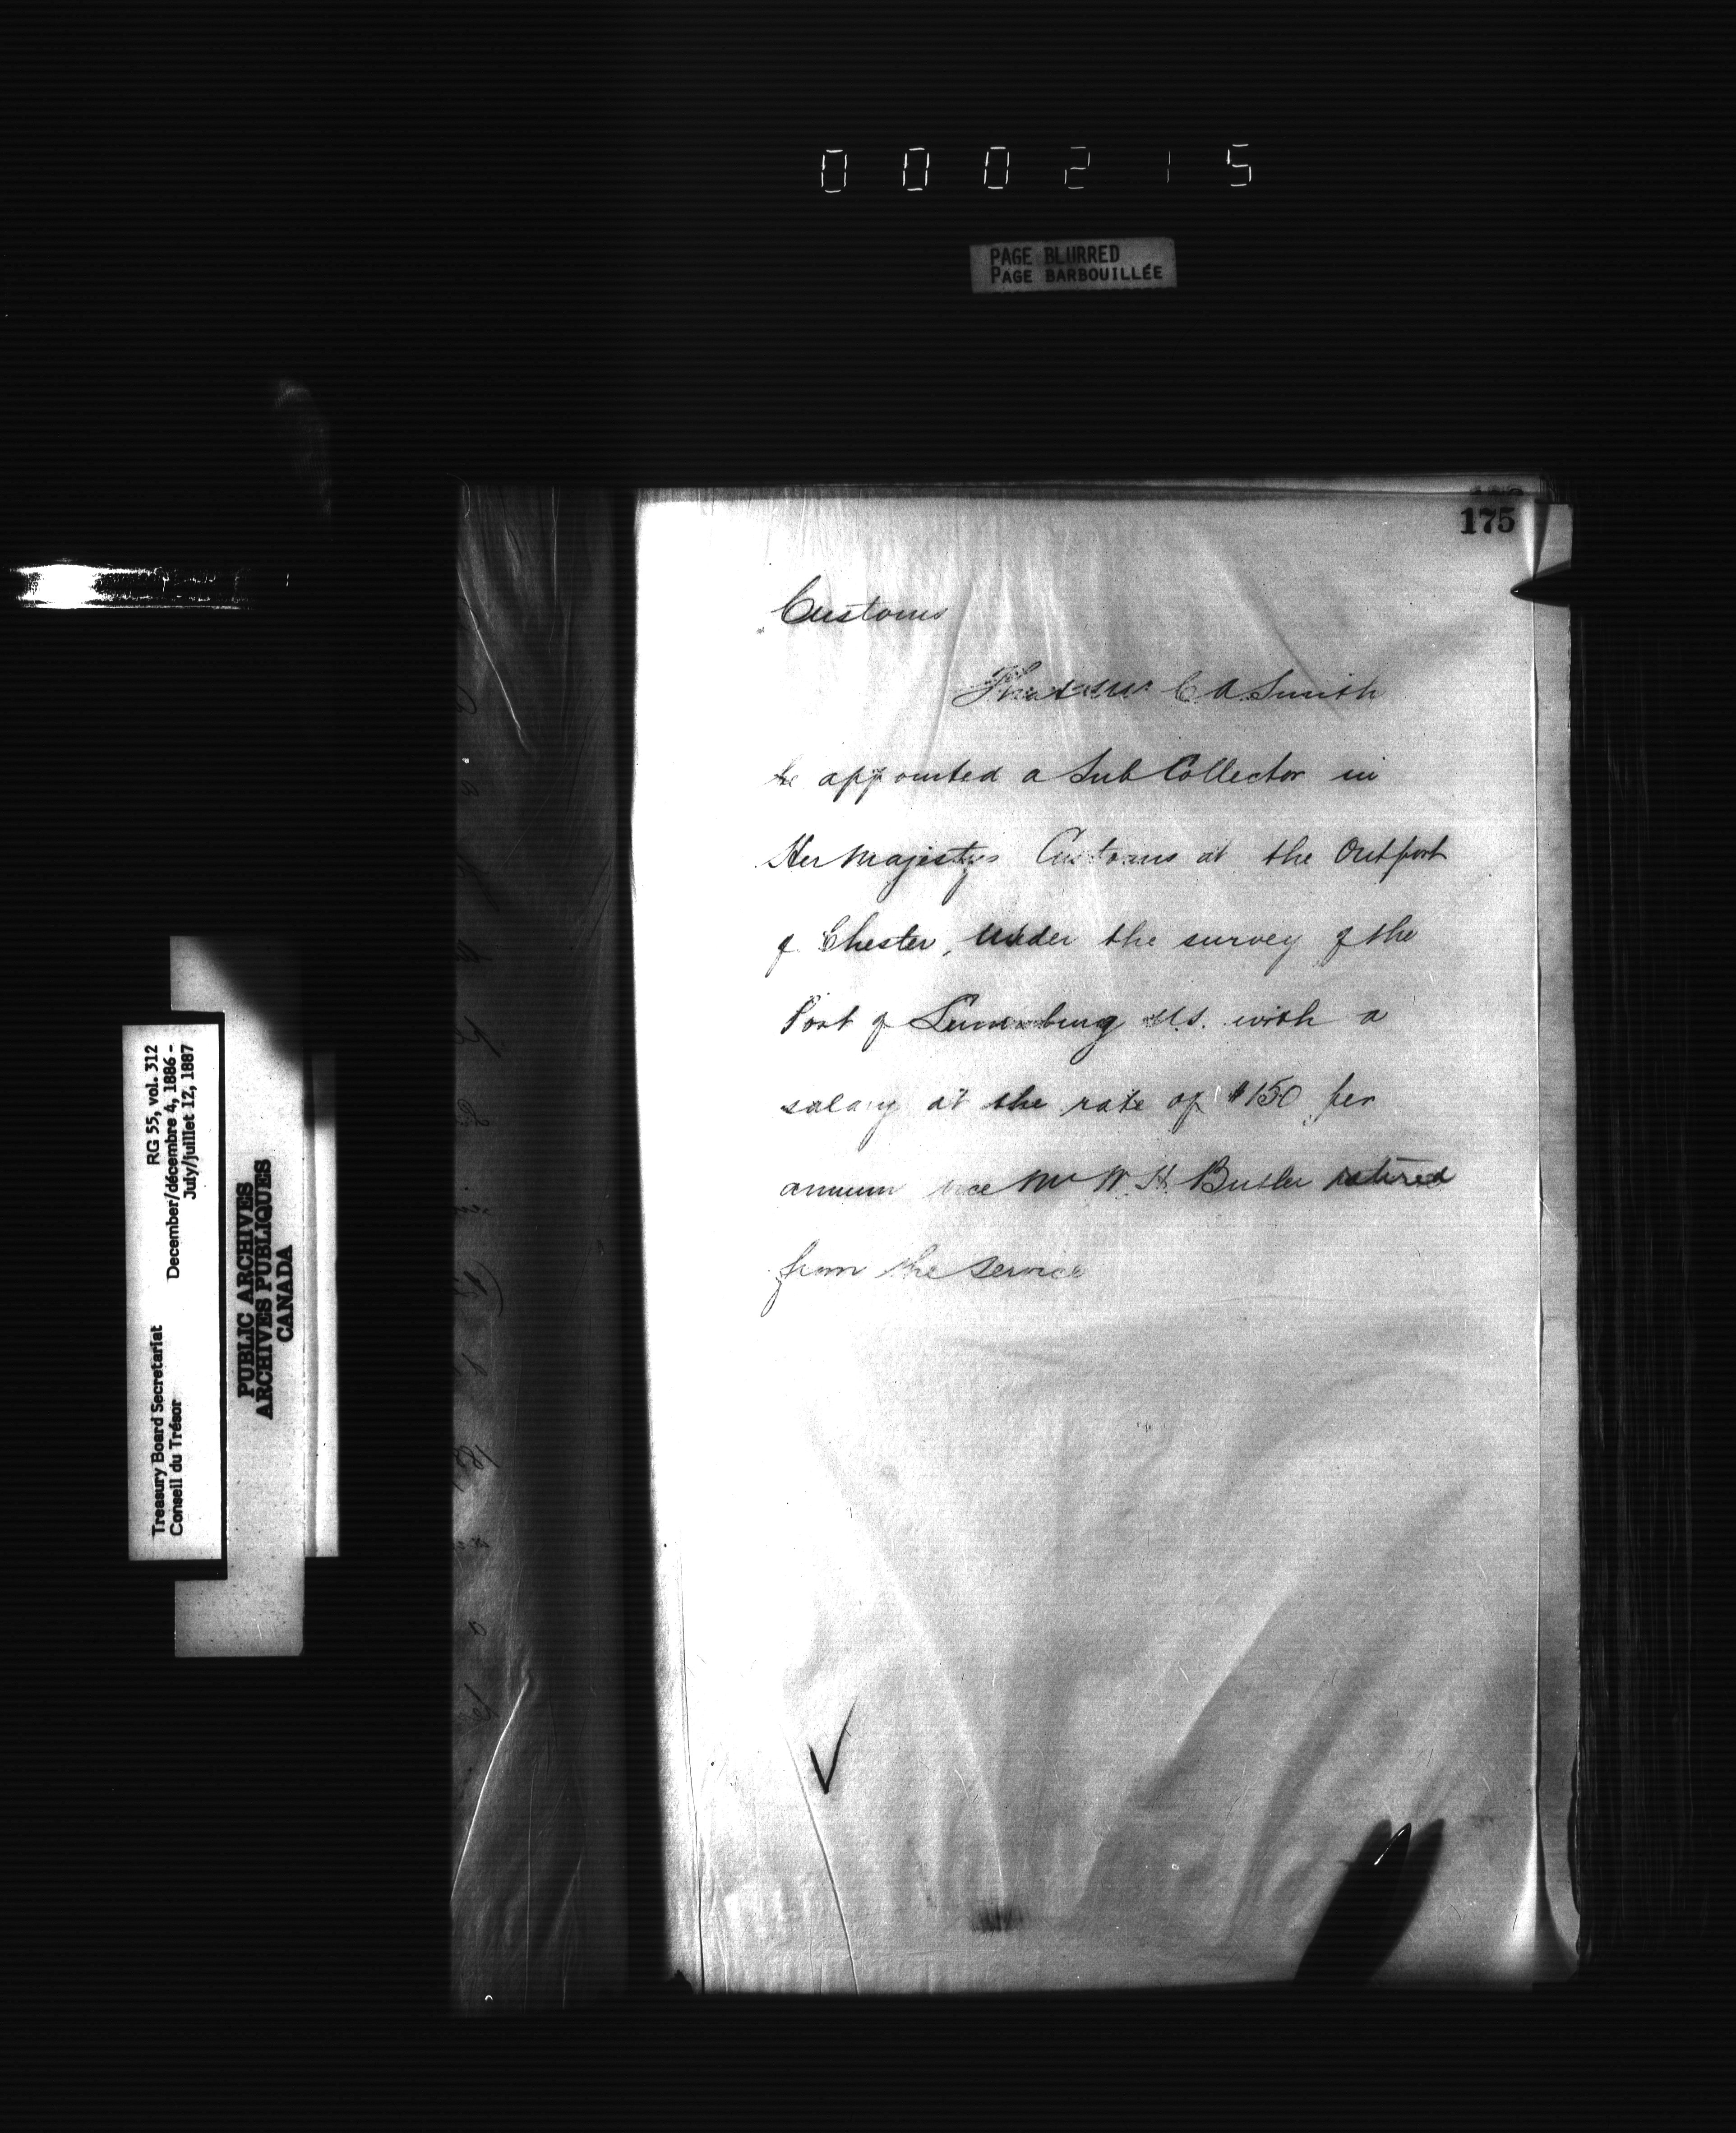 000215
PAGE BLURRED
PAGE BARBOUILLÉE
175
Customs
That Mr C A Smith
be appointed a Sub Collector in
Her Majestys Customs at the Outport
of Chester, under the survey of the
Port of Lunenburg N.S. with a
salary at the rate of $150 per
annum vice Mr W. H. Butler retired
from the service
Treasury Board Secretariat RG 55, vol. 312
Conseil du Trésor December/décembre 4, 1886 -
July/juillet 12, 1887
PUBLIC ARCHIVES
ARCHIVES PUBLIQUES
CANADA